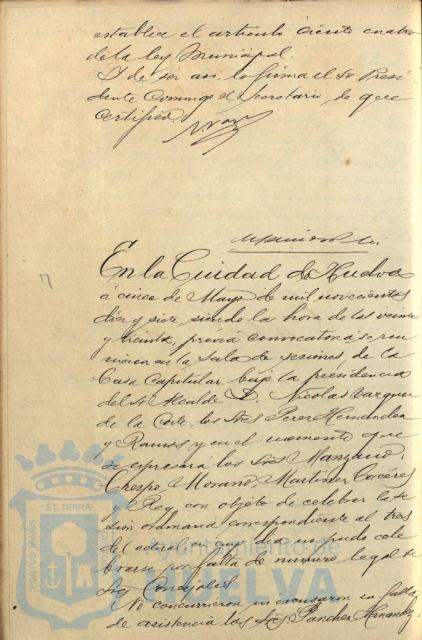 establece el artículo ciento cuatro
de la ley Municipal.
Y de ser así lo firma el Sr Presi
dente conmigo el Secretario de que
certifico.
En la Ciudad de Huelva
á cinco de Mayo de mil novecientos
diez y siete, siendo la hora de las veinte
y treinta, previa convocatoria se reu
nieron en la Sala de sesiones de la
Casa Capitular bajo la presidencia
del Sr Alcalde D. Nicolas Vazquez
de la Corte, los Sres Perez Hernandez
y Ramos y en el momento que
se expresará los Sres Manzano,
Crespo, Morano, Martinez Cáceres
y Rey con objeto de celebrar la se
sión ordinaria correspondiente al tres
del actual en cuyo dia no pudo cele
brarse por falta de número legal de
Sres Concejales.
No concurrieron ni excusaron su falta
de asistencia los Sres Sanchez Hernandez
PORTUS MARIS
ET TERRÆ
Ayuntamiento de
HUELVA